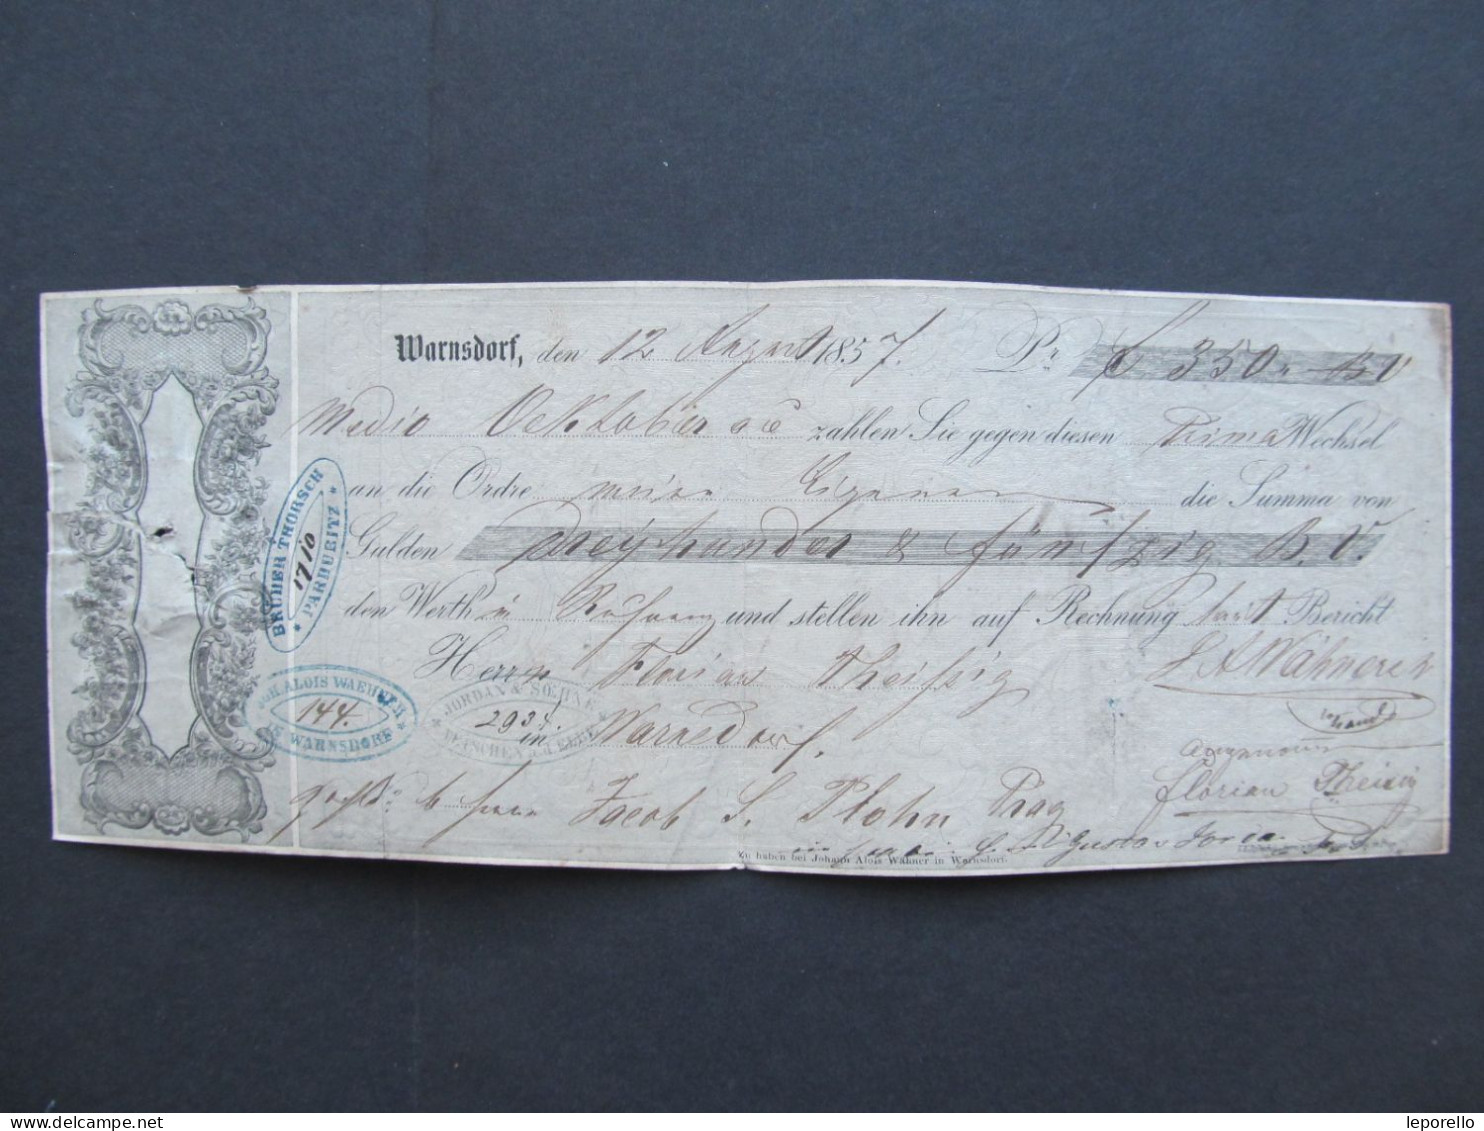 Warnsdorf, den 12 August 1857. Pr f 350 „ BV
Medio Oektober ac zahlen Sie gegen diesen Prima Wechsel
an die Ordre meine Eigene die Summa von
Gulden Dreyhundert & fünfzig B.V.
den Werth in Rechnung und stellen ihn auf Rechnung laut Bericht
Herrn Florian Theissig J A Wähner
in Warnsdorf.
Angenommen
Florian Theissig
Jacob S. Plohn Prag
Zu haben bei Johann Alois Wähner in Warnsdorf.
BRÜDER THORSCH
1710
* PARDUBITZ *
JOH. ALOIS WAEHNER
144.
* WARNSDORF *
* JORDAN & SŒHNE *
2937.
TETSCHEN A/d ELBE
leporello